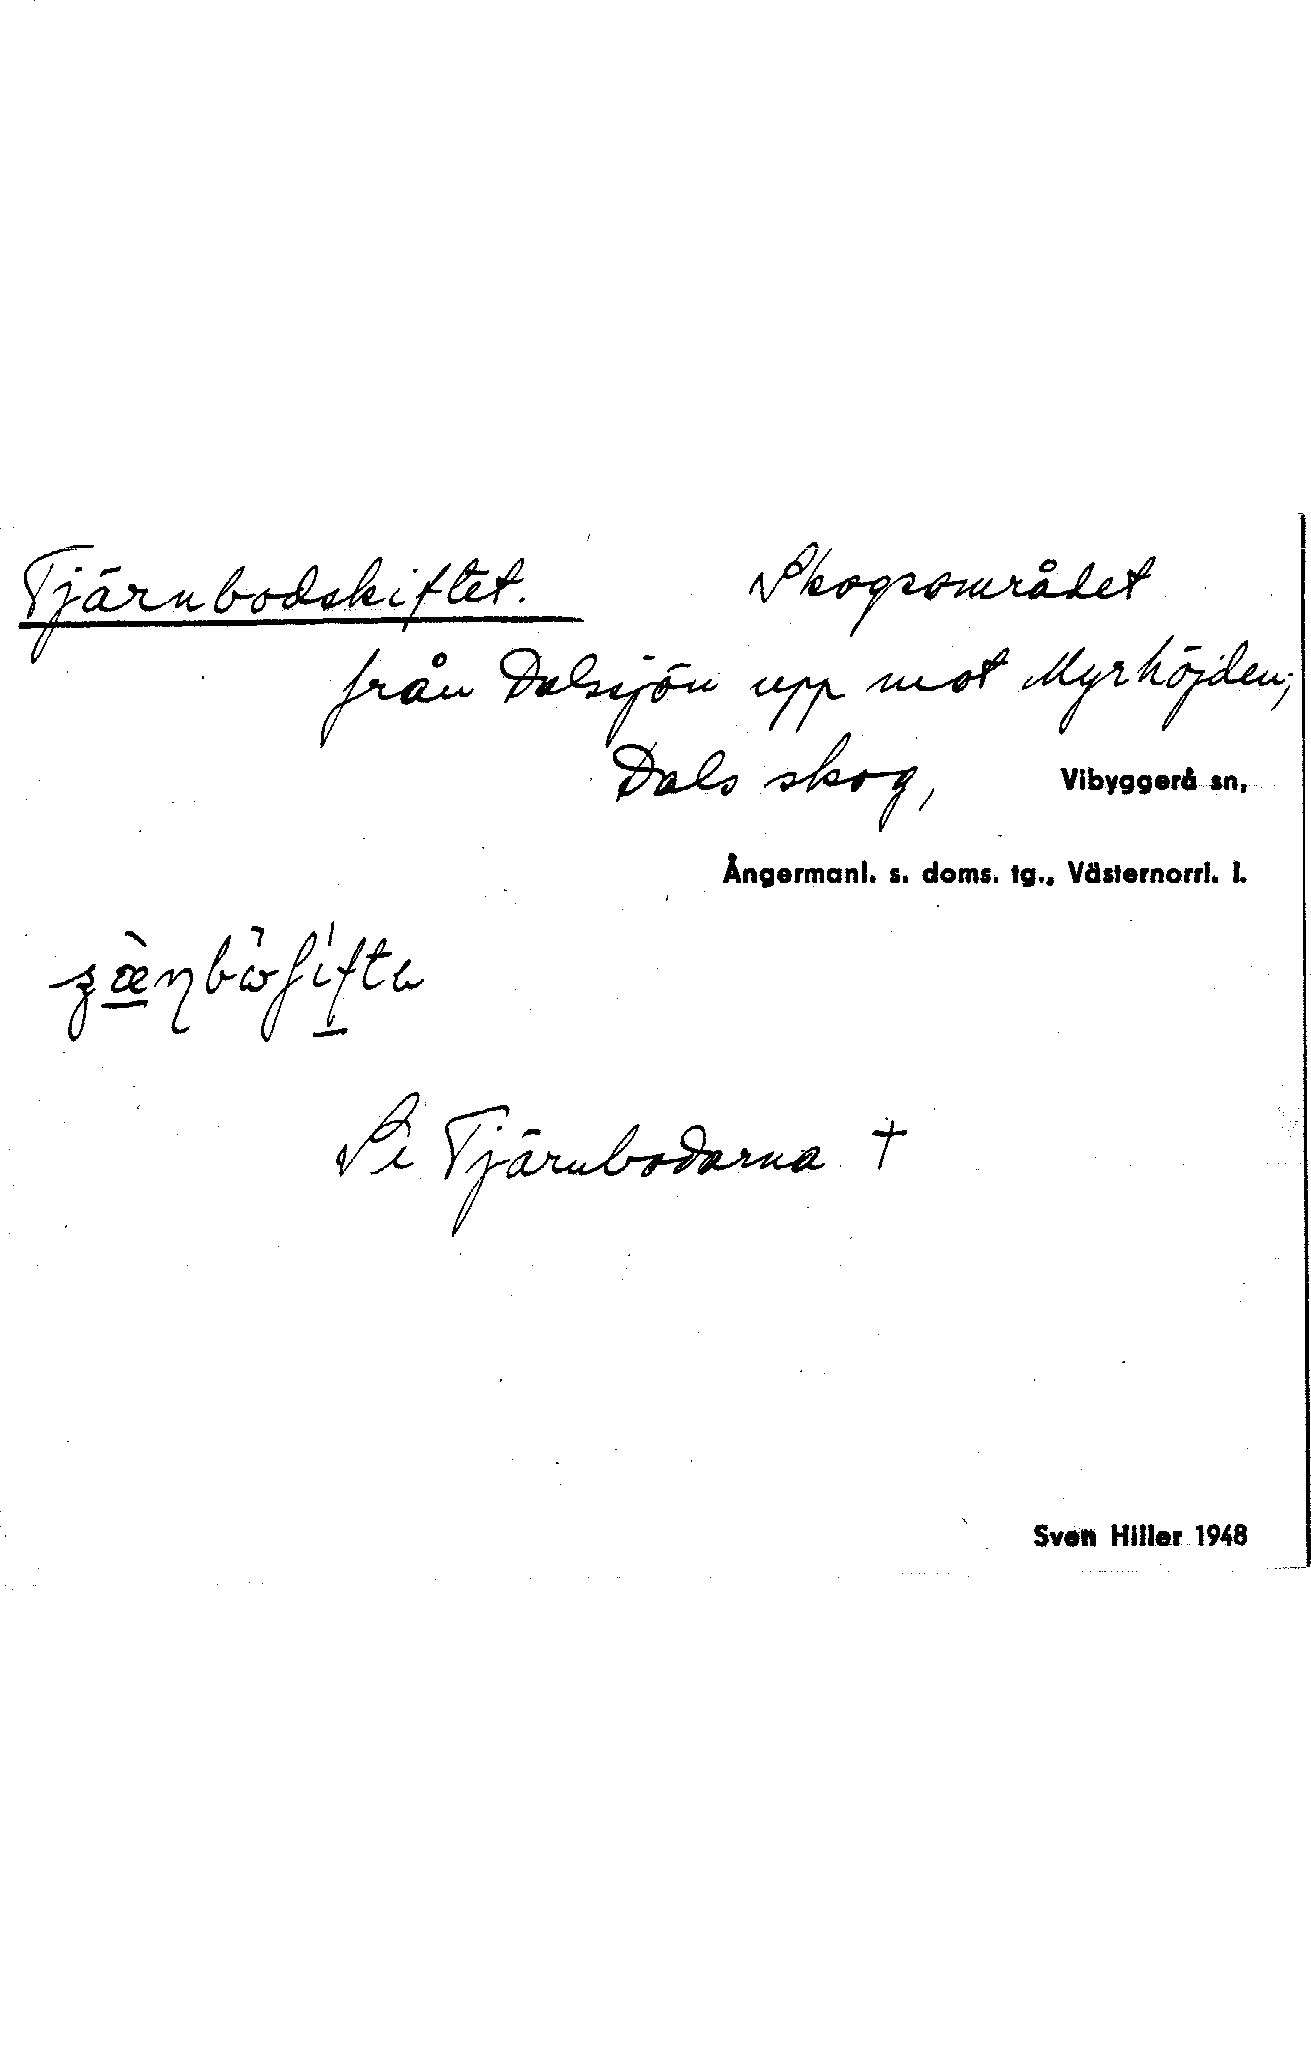 Tjärnbodskiftet. Skogsområdet
från Dalsjön upp mot Myrhöjden;
Dals skog, Vibyggerå sn,
Ångermanl. s. doms. tg., Västernorrl. l.
Se Tjärnbodarna †
Sven Hiller 1948